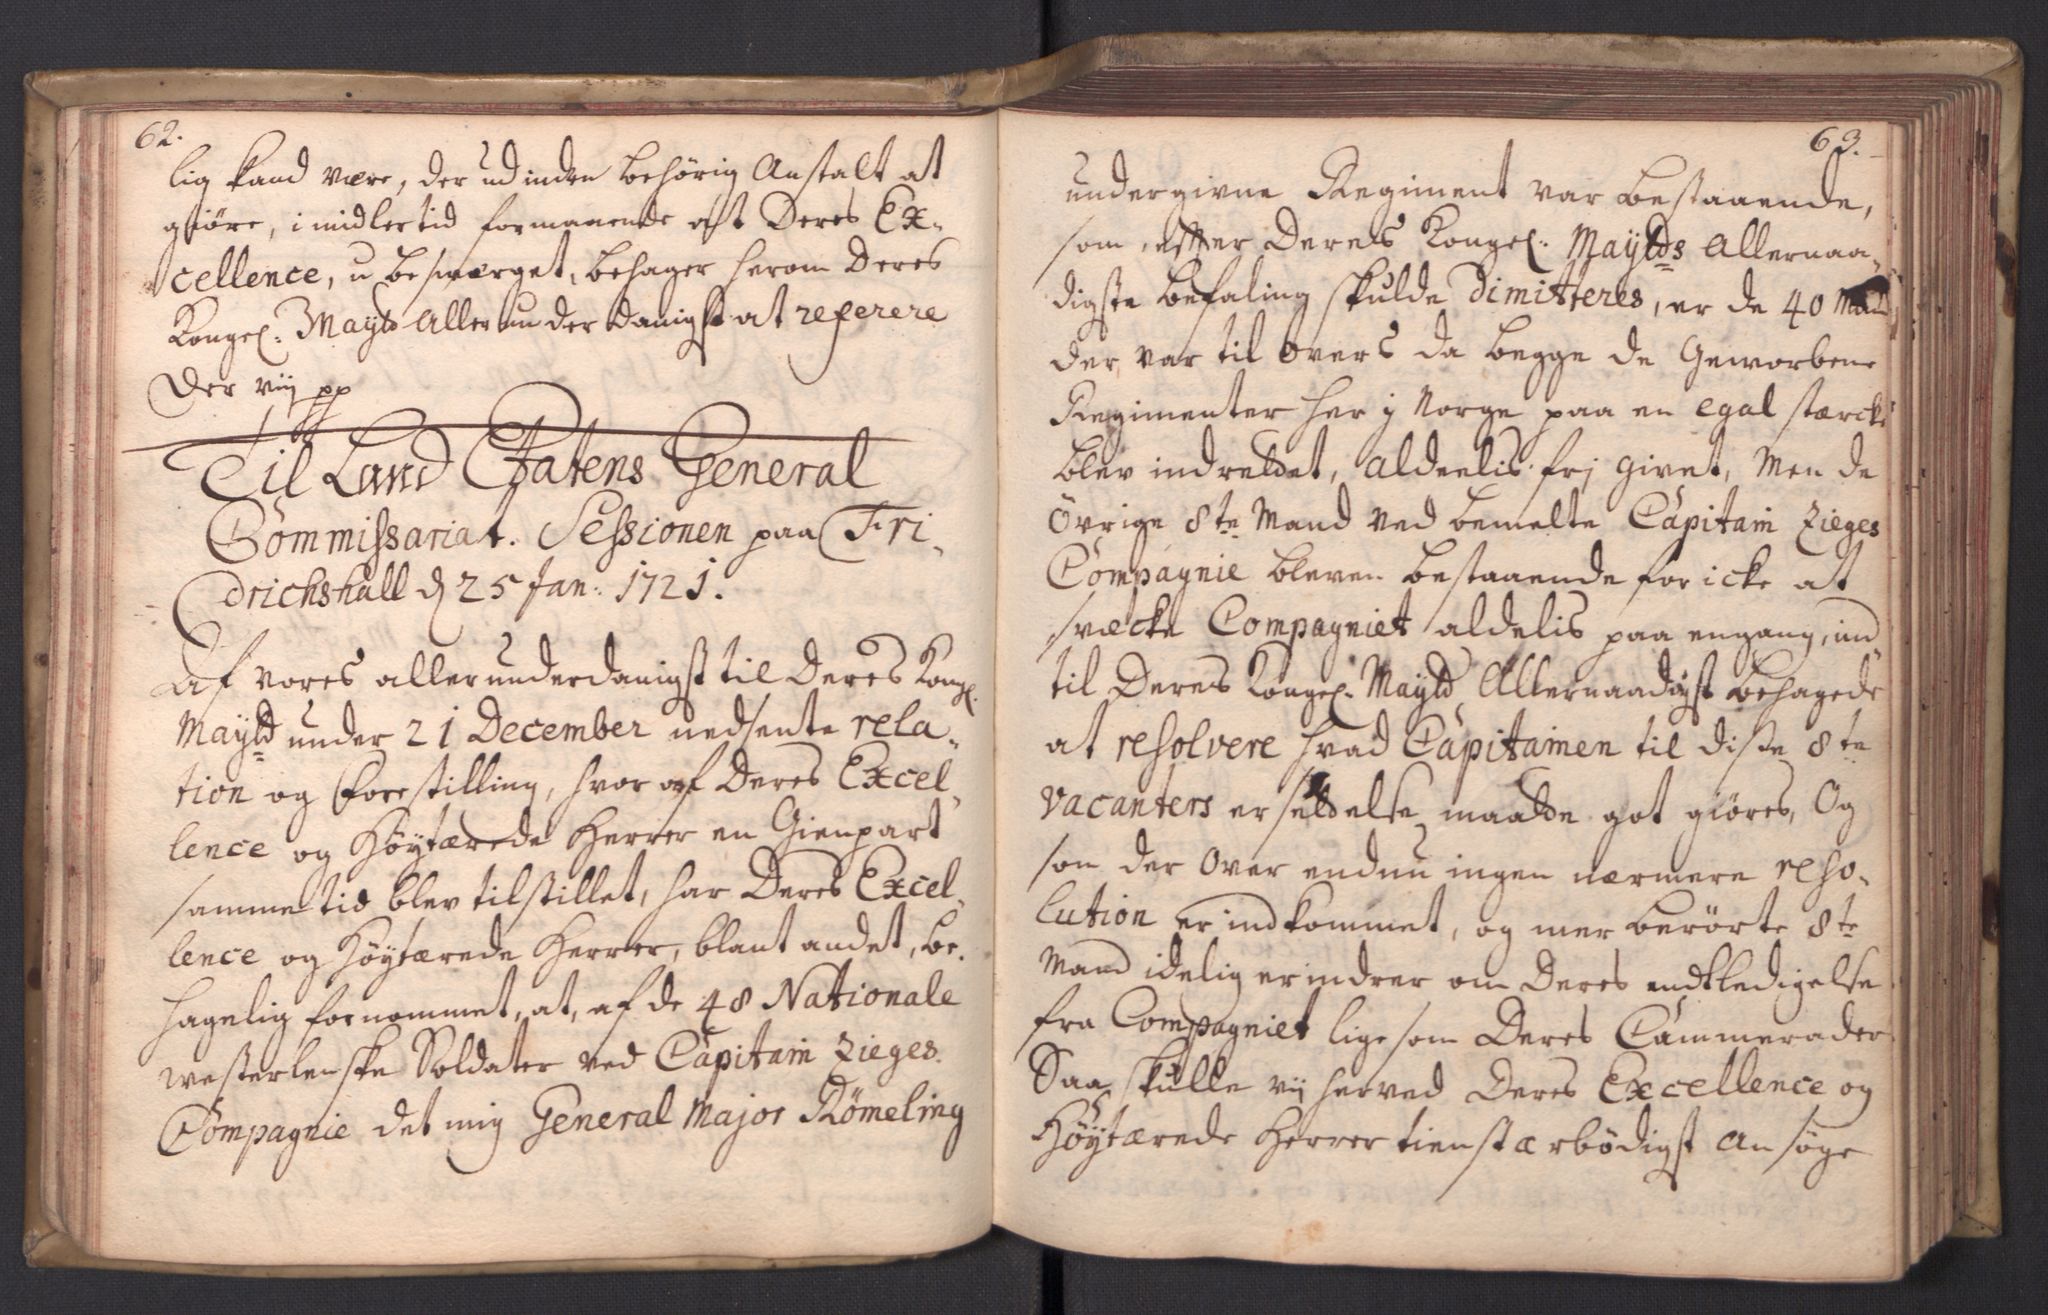 62.
lig kand være, der ud inden behörig Anstalt at
giöre, imidlertid formaaende at Deres Ex-
cellence, u besværget, behager herom Deres
Kongel: Mayld Allerunderdanigst at referere
Der vij pp
Til Land Etatens General
Commissariat. Sessionen paa Fri-
drichshall d 25 Jan: 1721.
Af vores allerunderdanigst til Deres Kongl.
Mayld under 21 December nedsente rela-
tion og forestilling, hvor af Deres Excel-
lence og Höytærede Herrer en Gienpart
samme tid blev tilstillet, har Deres Excel-
lence og Höytærede Herrer, blant andet, be-
hagelig fornommet, at, af de 48 Nationale
westerlenske Soldater ved Capitain Zieges
Compagnie det mig General Major Römeling
63.
undergivne Regiment var bestaaende,
som, efter Deres Kongel: Maylds Allernaa-
digste befaling skulde dimitteres, er de 40 Mand
der var til overs da begge de Geworbene
Regimenter her j Norge paa en egal stærcke
blev indreddet, aldeelis frj givet, Men de
övrige 8te Mand ved bemelte Capitain Zieges
Compagnie bleven bestaaende for icke at
svæcke Compagniet aldelis paa engang, ind
til Deres Kongel: Mayld Allernaadigst behagede
at resolvere hvad Capitainen til disse 8te
vacanters ersettelse maatte got giöres, Og
som der over endnu ingen nærmere reso-
lution er indkommet, og mer berörte 8te
Mand idelig erindrer om Deres endtledigelse
fra Compagniet lige som Deres Cammerader
Saa skulle vij herved Deres Excellence og
Höytærede Herrer tienstærbödigst ansöge